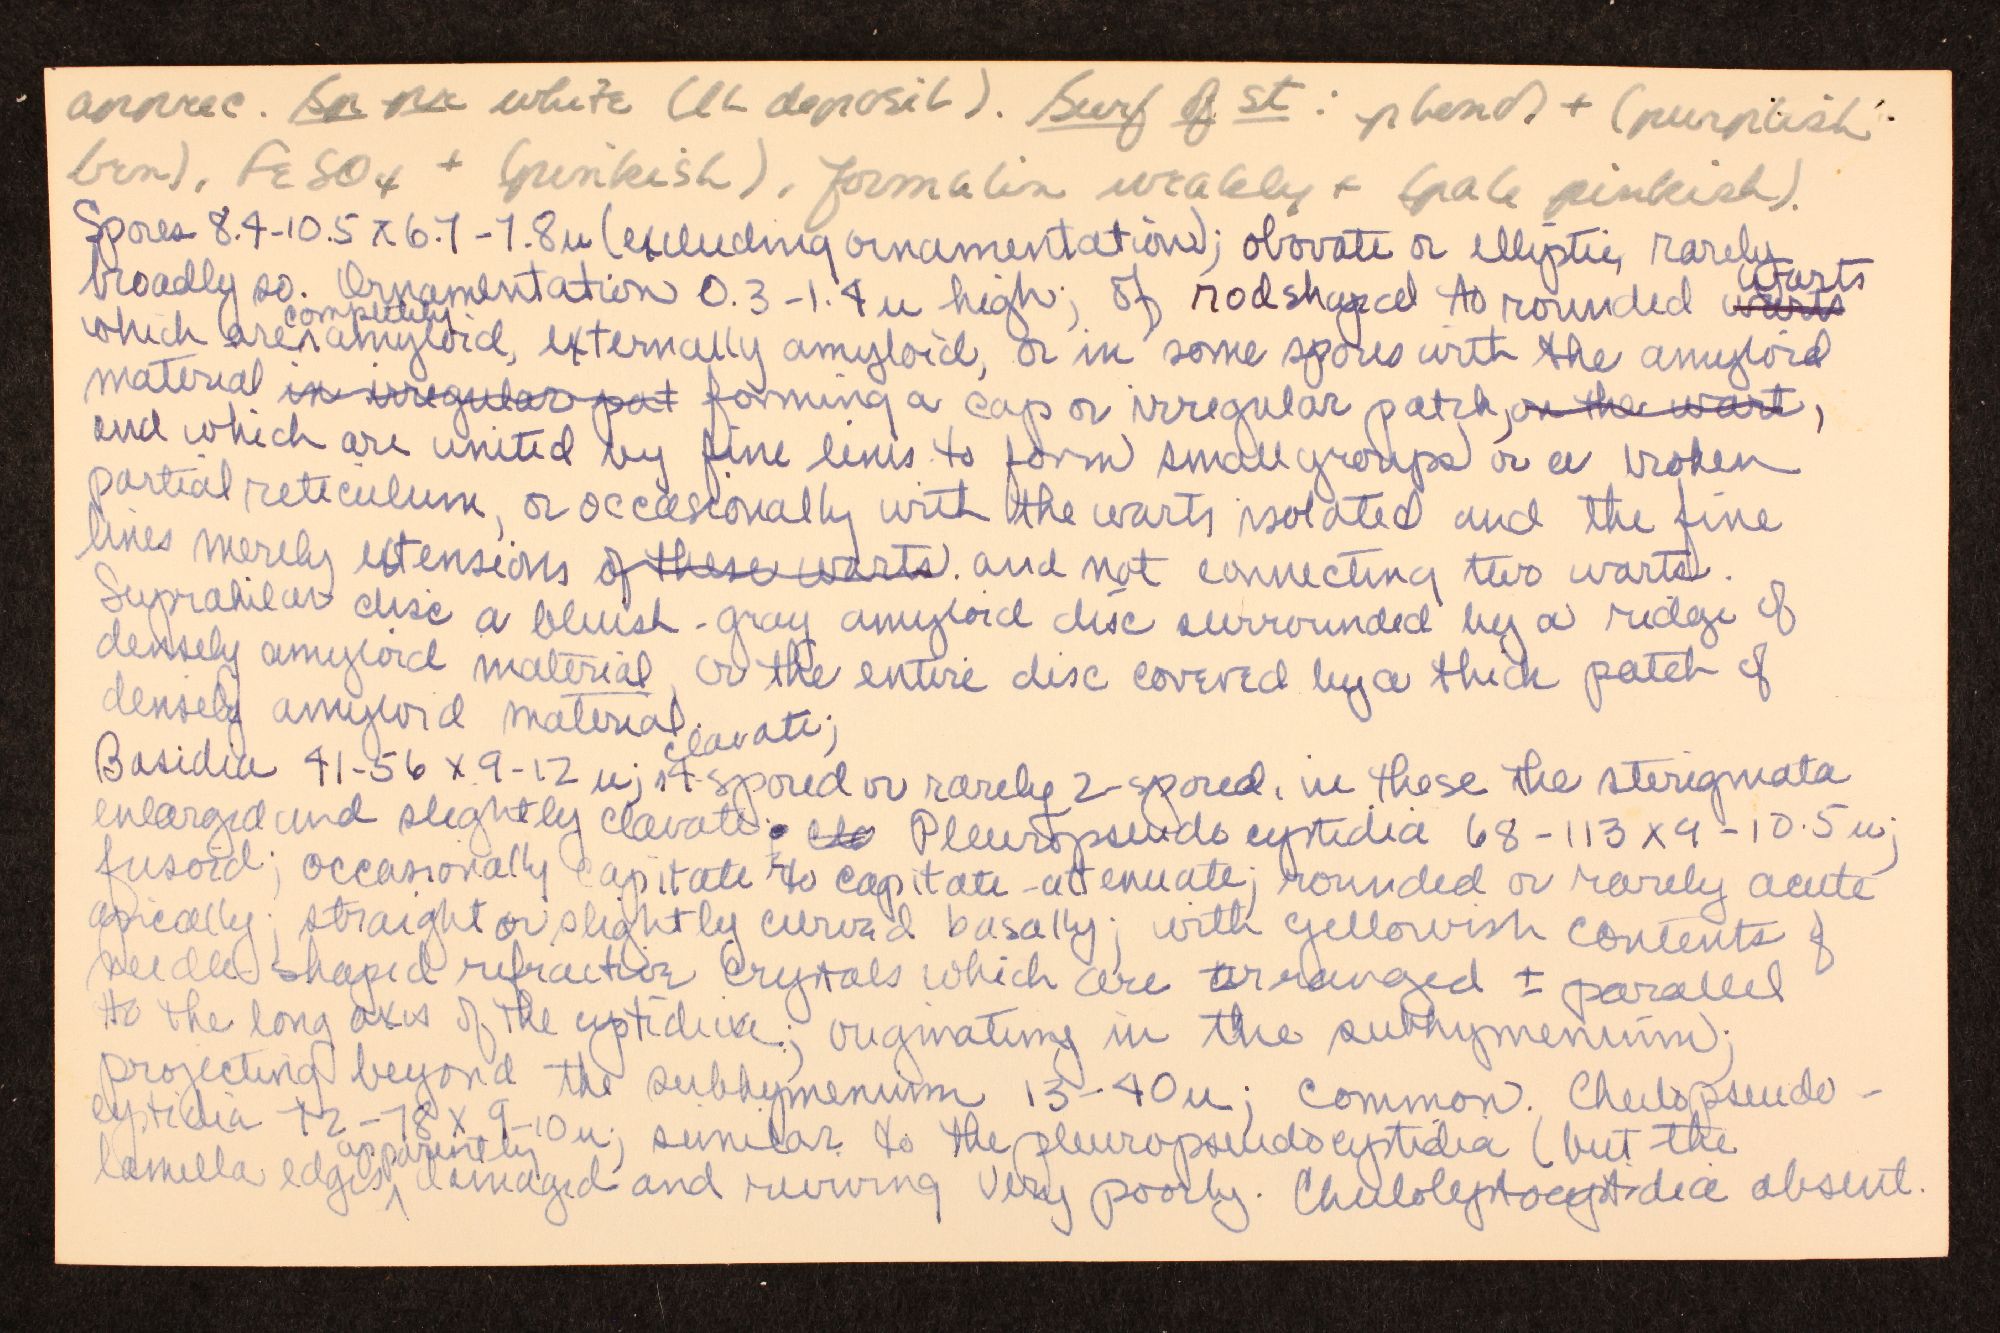 apprec. Sp pr white (lt deposit). Surf of st: phenol + (purplish
brn), FeSO4 + (pinkish), formalin weakly + (pale pinkish).
Spores 8.4-10.5 x 6.7-7.8u (excluding ornamentation); obovate or elliptic, rarely
broadly so. Ornamentation 0.3-1.4u high; of rodshaped to rounded warts warts
which are completely amyloid, externally amyloid, or in some spores with the amyloid
material in irregular pat forming a cap or irregular patch, on the wart,
and which are united by fine lines to form small groups or a broken
partial reticulum, or occasionally with the warts isolated and the fine
lines merely extensions of these warts. and not connecting two warts.
Suprahilar disc a bluish-gray amyloid disc surrounded by a ridge of
densely amyloid material, or the entire disc covered by a thick patch of
densely amyloid material.
Basidia 41-56 x 9-12 u; clavate; 4-spored or rarely 2-spored, in these the sterigmata
enlarged and slightly clavate. Pleuropseudocystidia 68-113 x 9-10.5u;
fusoid; occasionally capitate to capitate-attenuate; rounded or rarely acute
apically; straight or slightly curved basally; with yellowish contents of
needle shaped refractive crystals which are arranged ± parallel
to the long axis of the cystidium; originating in the subhymenium;
projecting beyond the subhymenium 13-40u; common. Cheilopseudo-
cystidia 72-78 x 9-10u; similar to the pleuropseudocystidia (but the
lamella edges apparently damaged and reviving very poorly. Cheiloleptocystidia absent.